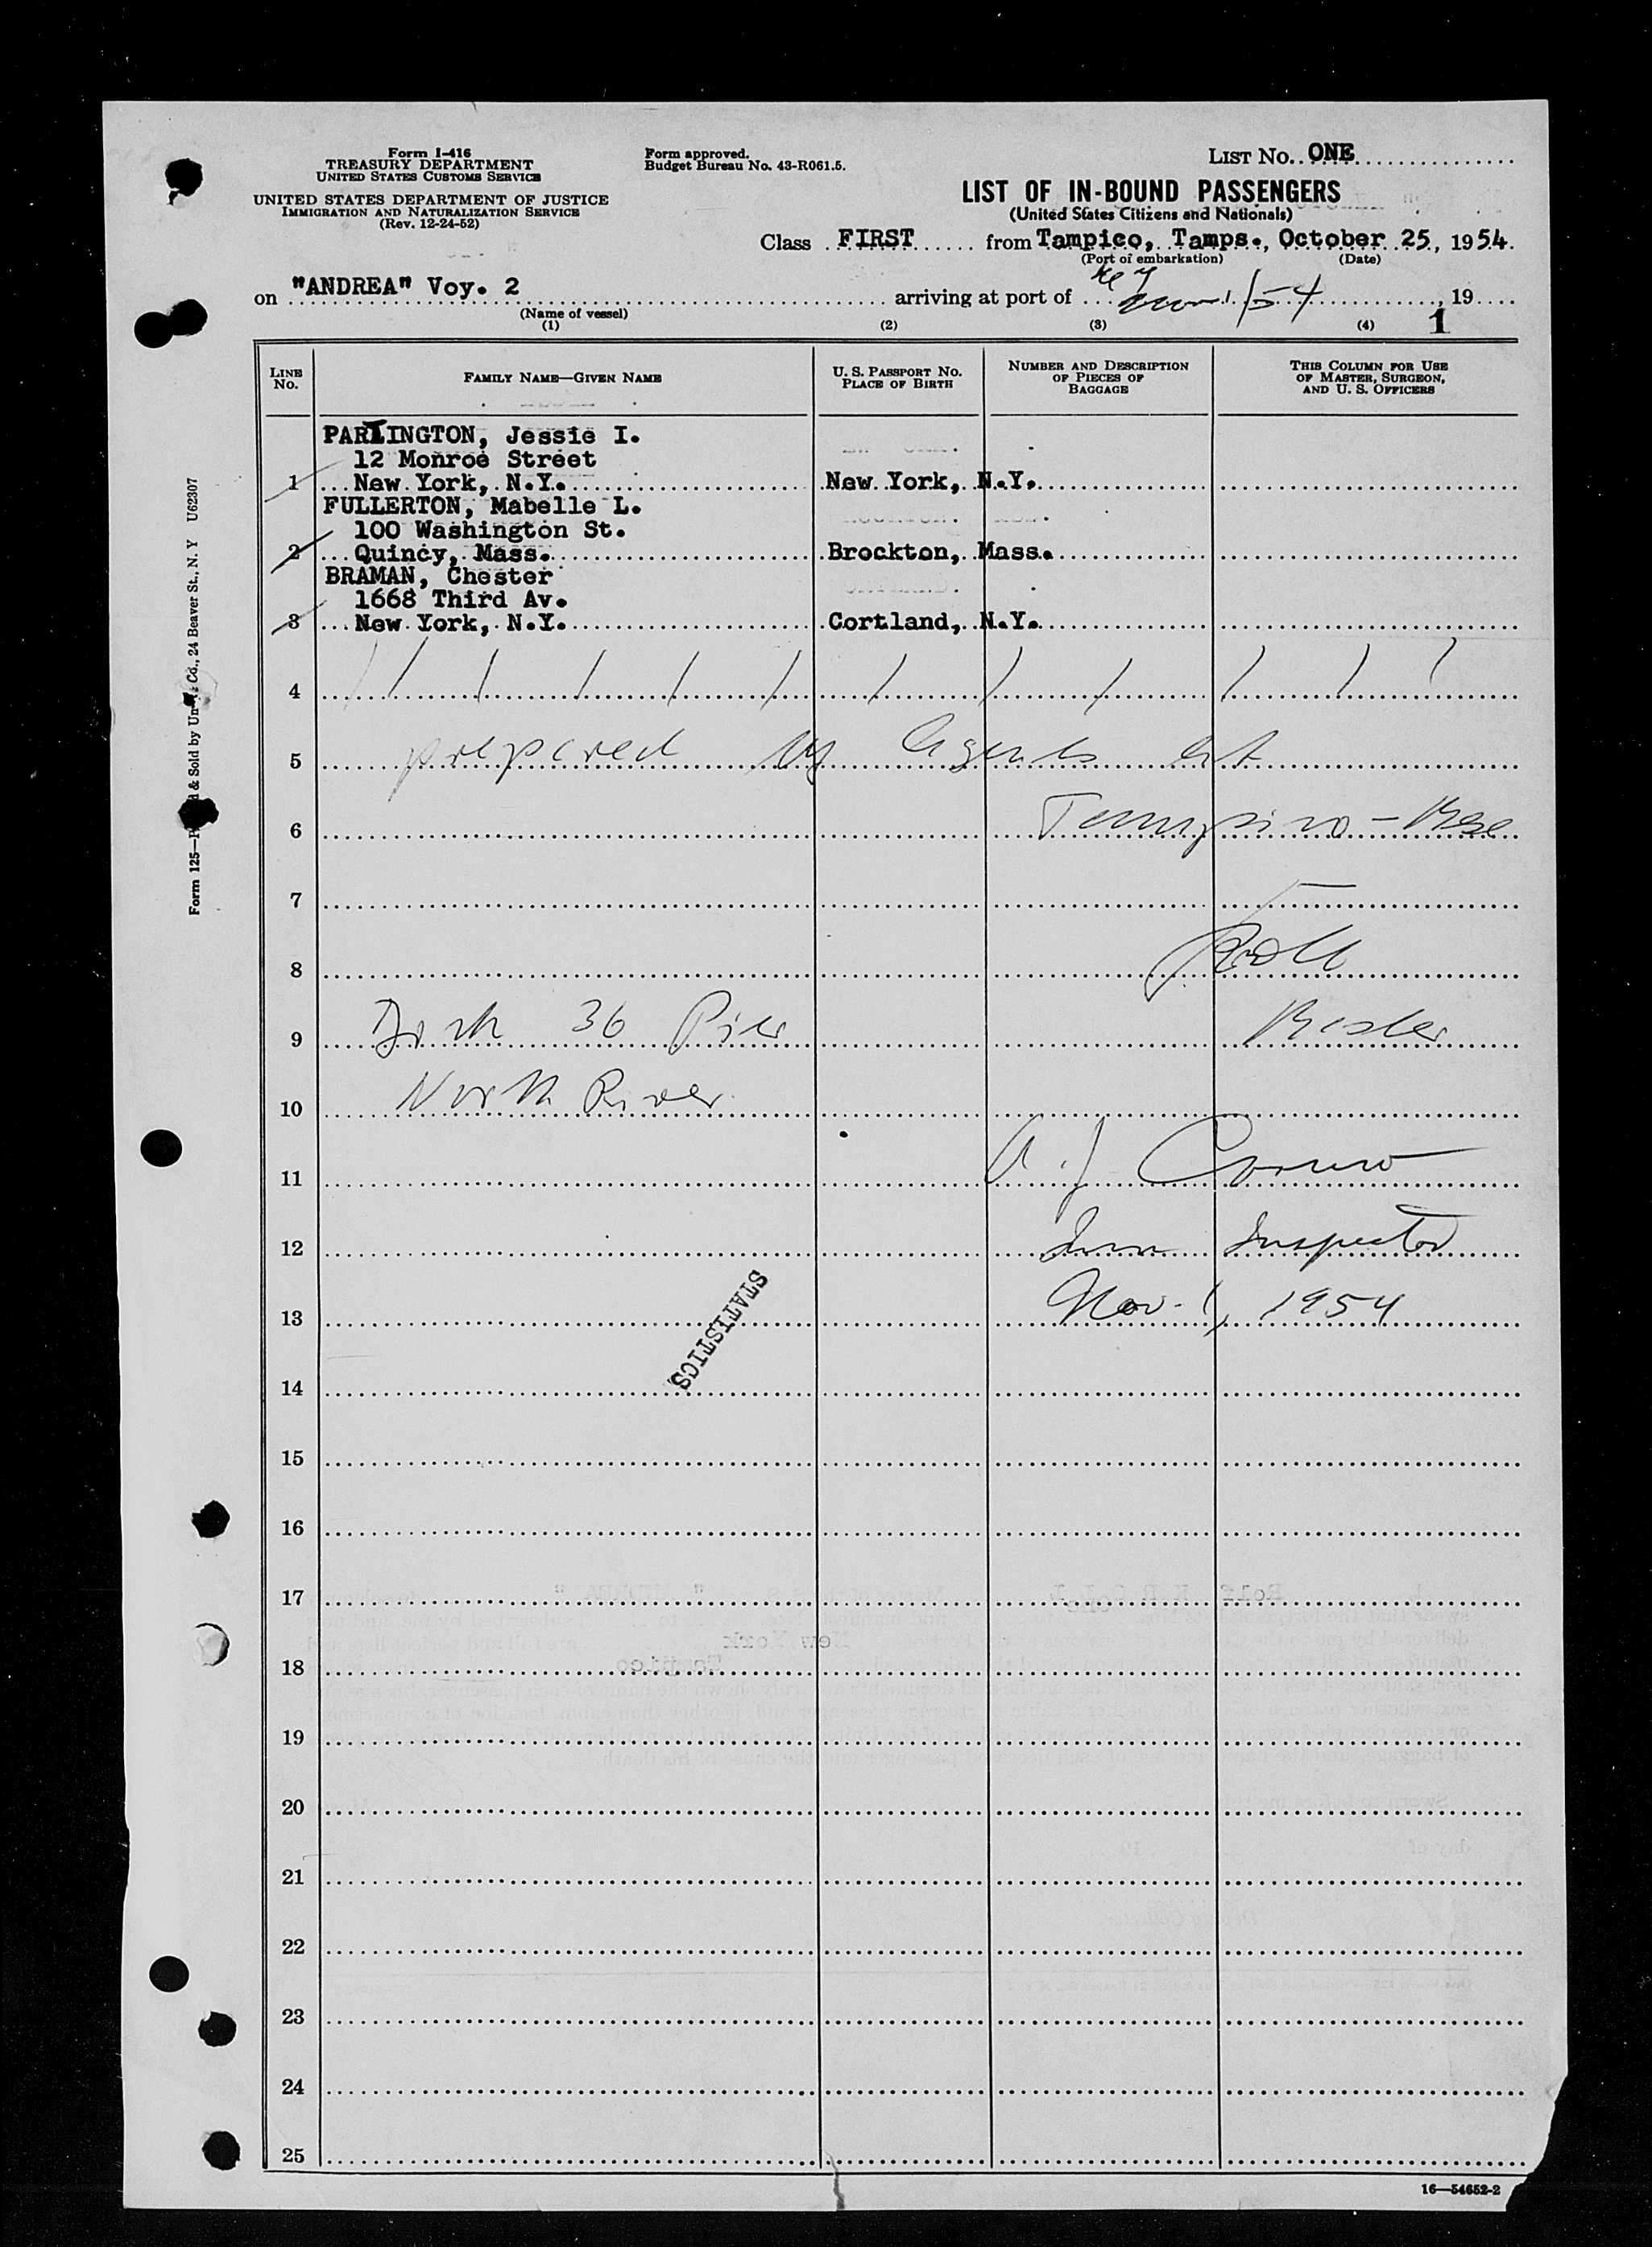 Form I-416
TREASURY DEPARTMENT
UNITED STATES CUSTOMS SERVICE
UNITED STATES DEPARTMENT OF JUSTICE
IMMIGRATION AND NATURALIZATION SERVICE
(Rev. 12-24-52)
Form approved.
Budget Bureau No. 43-R061.5.
LIST NO. ONE
LIST OF IN-BOUND PASSENGERS
(United States Citizens and Nationals)
Class FIRST from Tampico, Tamps., October 25, 1954.
(Port of embarkation) (Date)
on "ANDREA" Voy. 2 arriving at port of Nov 1/54, 19
(Name of vessel)
(1) (2) (3) (4) 1
LINE NO.
FAMILY NAME—GIVEN NAME
U. S. PASSPORT NO.
PLACE OF BIRTH
NUMBER AND DESCRIPTION
OF PIECES OF
BAGGAGE
THIS COLUMN FOR USE
OF MASTER, SURGEON,
AND U. S. OFFICERS
PARTINGTON, Jessie I.
12 Monroe Street
1 New York, N.Y. New York, N.Y.
FULLERTON, Mabelle L.
100 Washington St.
2 Quincy, Mass. Brockton, Mass.
BRAMAN, Chester
1668 Third Av.
3 New York, N.Y. Cortland, N.Y.
4
5 prepared by Agents at
6 Tampico
7
8
9 Dock 36 Pier
10 North River
11 A. J.
12 Imm Inspector
13 Nov. 1, 1954
STATISTICS
14
15
16
17
18
19
20
21
22
23
24
25
16—54652-2
Form 125— & Sold by Co., 24 Beaver St., N. Y U62307